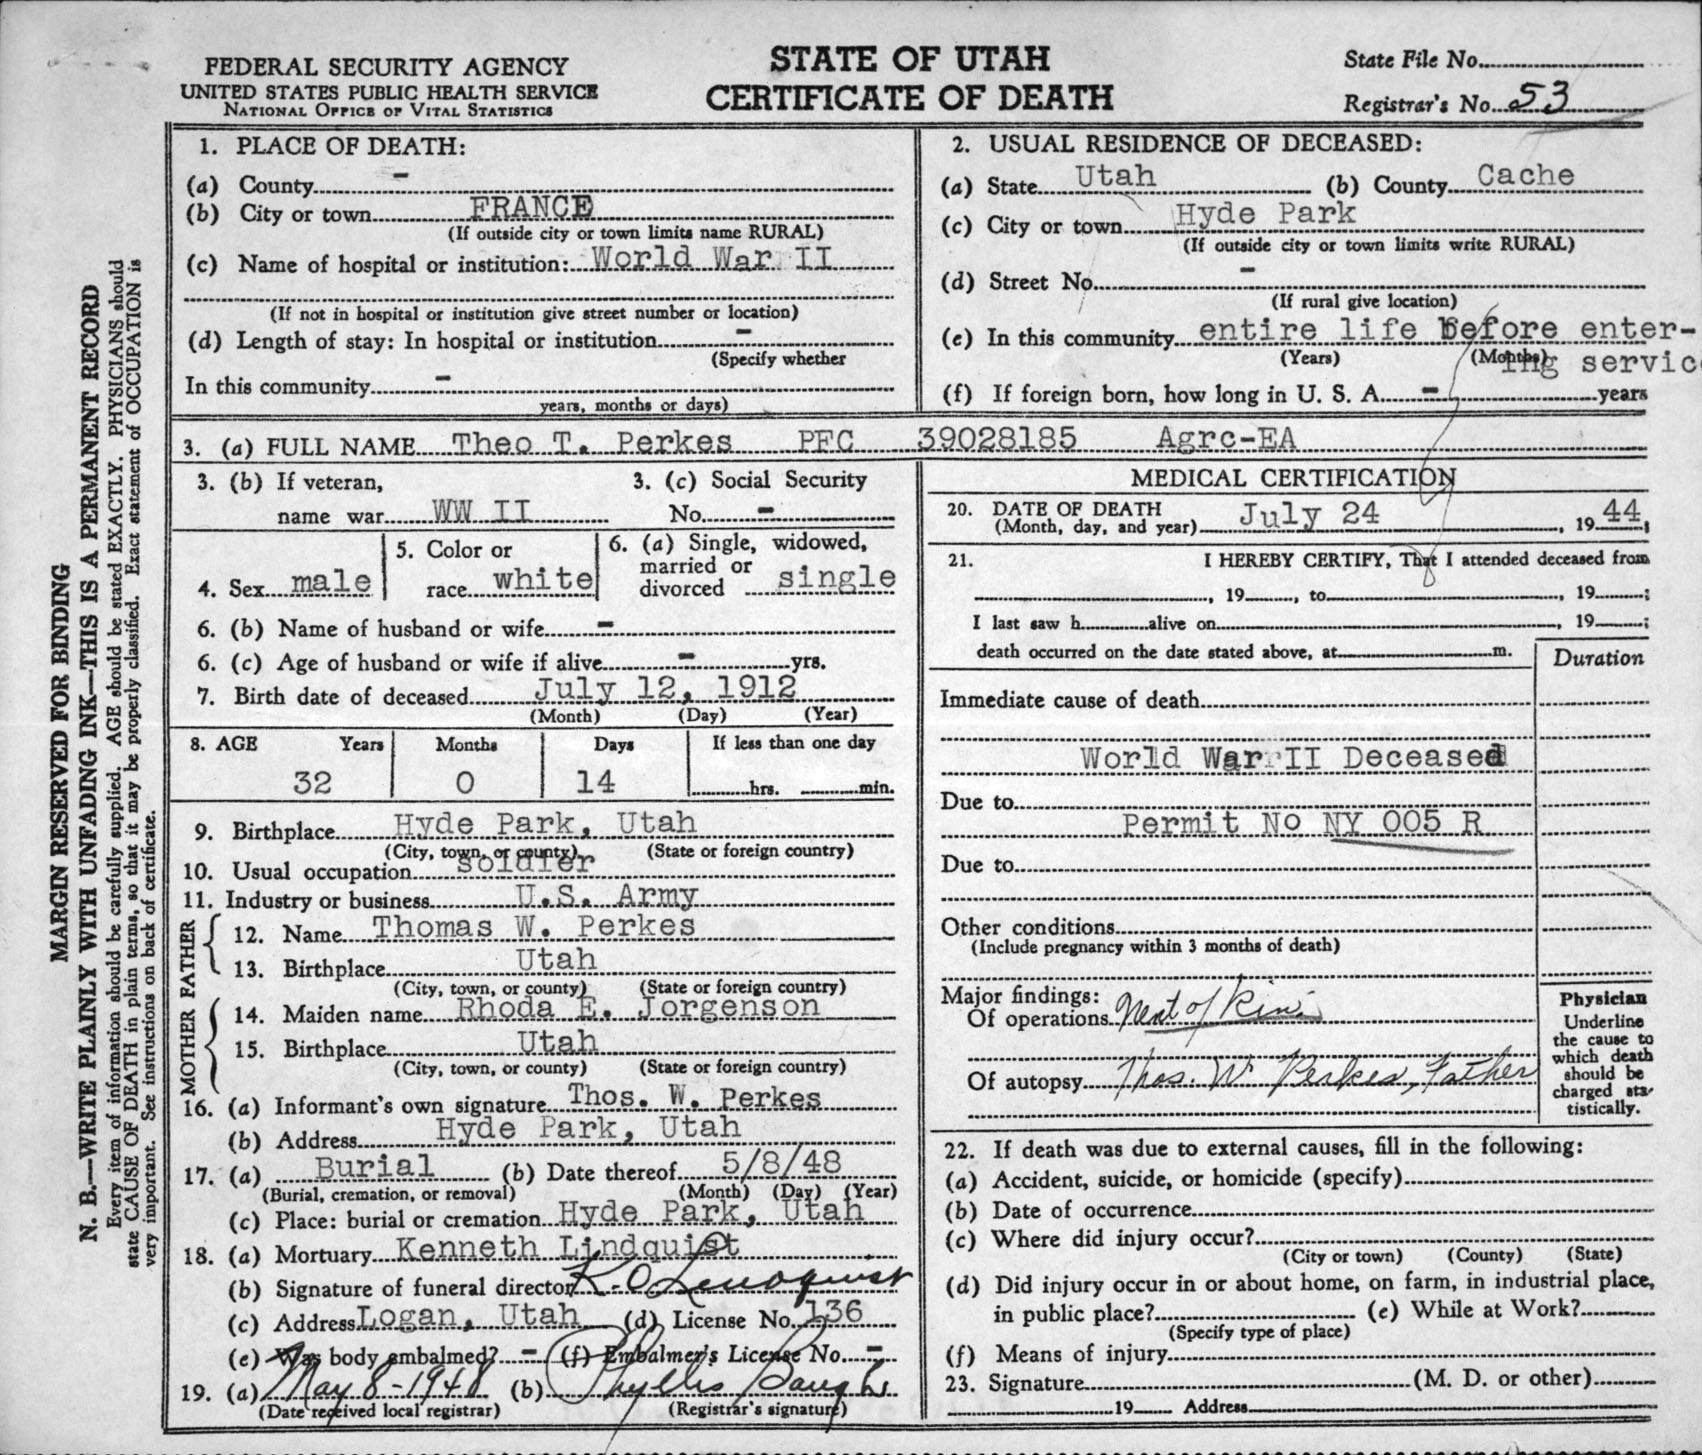 FEDERAL SECURITY AGENCY
UNITED STATES PUBLIC HEALTH SERVICE
NATIONAL OFFICE OF VITAL STATISTICS
STATE OF UTAH
CERTIFICATE OF DEATH
State File No.
Registrar's No. 53
MARGIN RESERVED FOR BINDING
N. B.—WRITE PLAINLY WITH UNFADING INK—THIS IS A PERMANENT RECORD
Every item of information should be carefully supplied. AGE should be stated EXACTLY. PHYSICIANS should
state CAUSE OF DEATH in plain terms, so that it may be properly classified. Exact statement of OCCUPATION is
very important. See instructions on back of certificate.
1. PLACE OF DEATH:
(a) County -
(b) City or town FRANCE
(If outside city or town limits name RURAL)
(c) Name of hospital or institution: World War II
(If not in hospital or institution give street number or location)
(d) Length of stay: In hospital or institution -
(Specify whether
In this community -
years, months or days)
2. USUAL RESIDENCE OF DECEASED:
(a) State Utah (b) County Cache
(c) City or town Hyde Park
(If outside city or town limits write RURAL)
(d) Street No. -
(If rural give location)
(e) In this community entire life before enter-
(Years) (Months) ing service
(f) If foreign born, how long in U. S. A. - years
3. (a) FULL NAME Theo T. Perkes PFC 39028185 Agrc-EA
3. (b) If veteran,
name war WW II
3. (c) Social Security
No. -
4. Sex male
5. Color or
race white
6. (a) Single, widowed,
married or
divorced single
6. (b) Name of husband or wife -
6. (c) Age of husband or wife if alive - yrs.
7. Birth date of deceased July 12, 1912
(Month) (Day) (Year)
8. AGE Years Months Days If less than one day
32 0 14 hrs. min.
9. Birthplace Hyde Park, Utah
(City, town, or county) (State or foreign country)
10. Usual occupation soldier
11. Industry or business U.S. Army
FATHER
12. Name Thomas W. Perkes
13. Birthplace Utah
(City, town, or county) (State or foreign country)
MOTHER
14. Maiden name Rhoda E. Jorgenson
15. Birthplace Utah
(City, town, or county) (State or foreign country)
16. (a) Informant's own signature Thos. W. Perkes
(b) Address Hyde Park, Utah
17. (a) Burial (b) Date thereof 5/8/48
(Burial, cremation, or removal) (Month) (Day) (Year)
(c) Place: burial or cremation Hyde Park, Utah
18. (a) Mortuary Kenneth Lindquist
(b) Signature of funeral director K. O Lindquist
(c) Address Logan, Utah (d) License No. 136
(e) Was body embalmed? - (f) Embalmer's License No. -
19. (a) May 8-1948 (b) Phyllis Baugh
(Date received local registrar) (Registrar's signature)
MEDICAL CERTIFICATION
20. DATE OF DEATH
(Month, day, and year) July 24, 19 44;
21. I HEREBY CERTIFY, That I attended deceased from
, 19 , to , 19 ;
I last saw h alive on , 19 ;
death occurred on the date stated above, at m.
Duration
Immediate cause of death
World War II Deceased
Due to
Permit No NY 005 R
Due to
Other conditions
(Include pregnancy within 3 months of death)
Major findings:
Of operations Next of Kin.
Of autopsy Thos. W. Perkes, Father
Physician
Underline
the cause to
which death
should be
charged sta-
tistically.
22. If death was due to external causes, fill in the following:
(a) Accident, suicide, or homicide (specify)
(b) Date of occurrence
(c) Where did injury occur?
(City or town) (County) (State)
(d) Did injury occur in or about home, on farm, in industrial place,
in public place? (e) While at Work?
(Specify type of place)
(f) Means of injury
23. Signature (M. D. or other)
19 Address